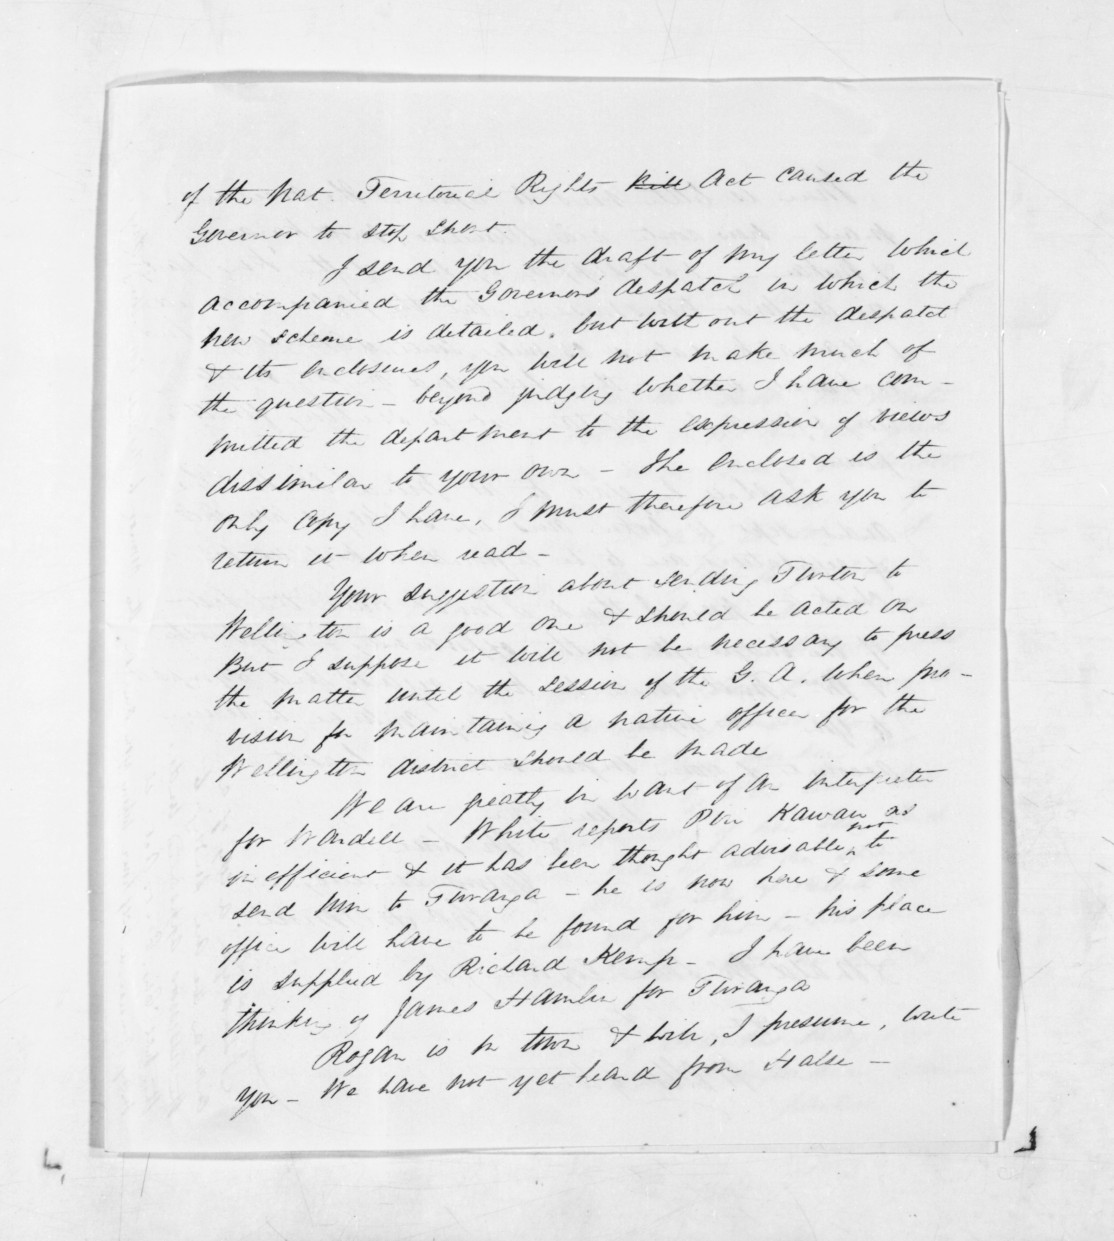 of the Nat. Territorial Rights Bill Act caused the
Governor to stop short.
I send you the draft of my letter which
accompanied the Governors despatch in which the
new scheme is detailed, but without the despatch
& its enclosures, you will not make much of
the question - beyond judging whether I have com-
mitted the department to the expression of views
dissimilar to your own - The enclosed is the
only copy I have, I must therefore ask you to
return it when read -
Your suggestion about sending Turton to
Wellington is a good one & should be acted on
But I suppose it will not be necessary to press
the matter until the session of the G. A. when pro-
vision for maintaining a native officer for the
Wellington district should be made
We are greatly in want of an interpreter
for Wardell - White reports Piri Kawau as
inefficient & it has been thought advisable not to
send him to Turanga - he is now here & some
office will have to be found for him - his place
is supplied by Richard Kemp - I have been
thinking of James Hamlin for Turanga
Rogan is in town & will, I presume, write
you - We have not yet heard from Halse -